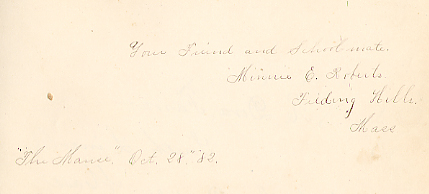 Your Friend and Schoolmate.
Minnie E. Roberts
Feeding Hills.
Mass
"The Manse", Oct. 28th '82.